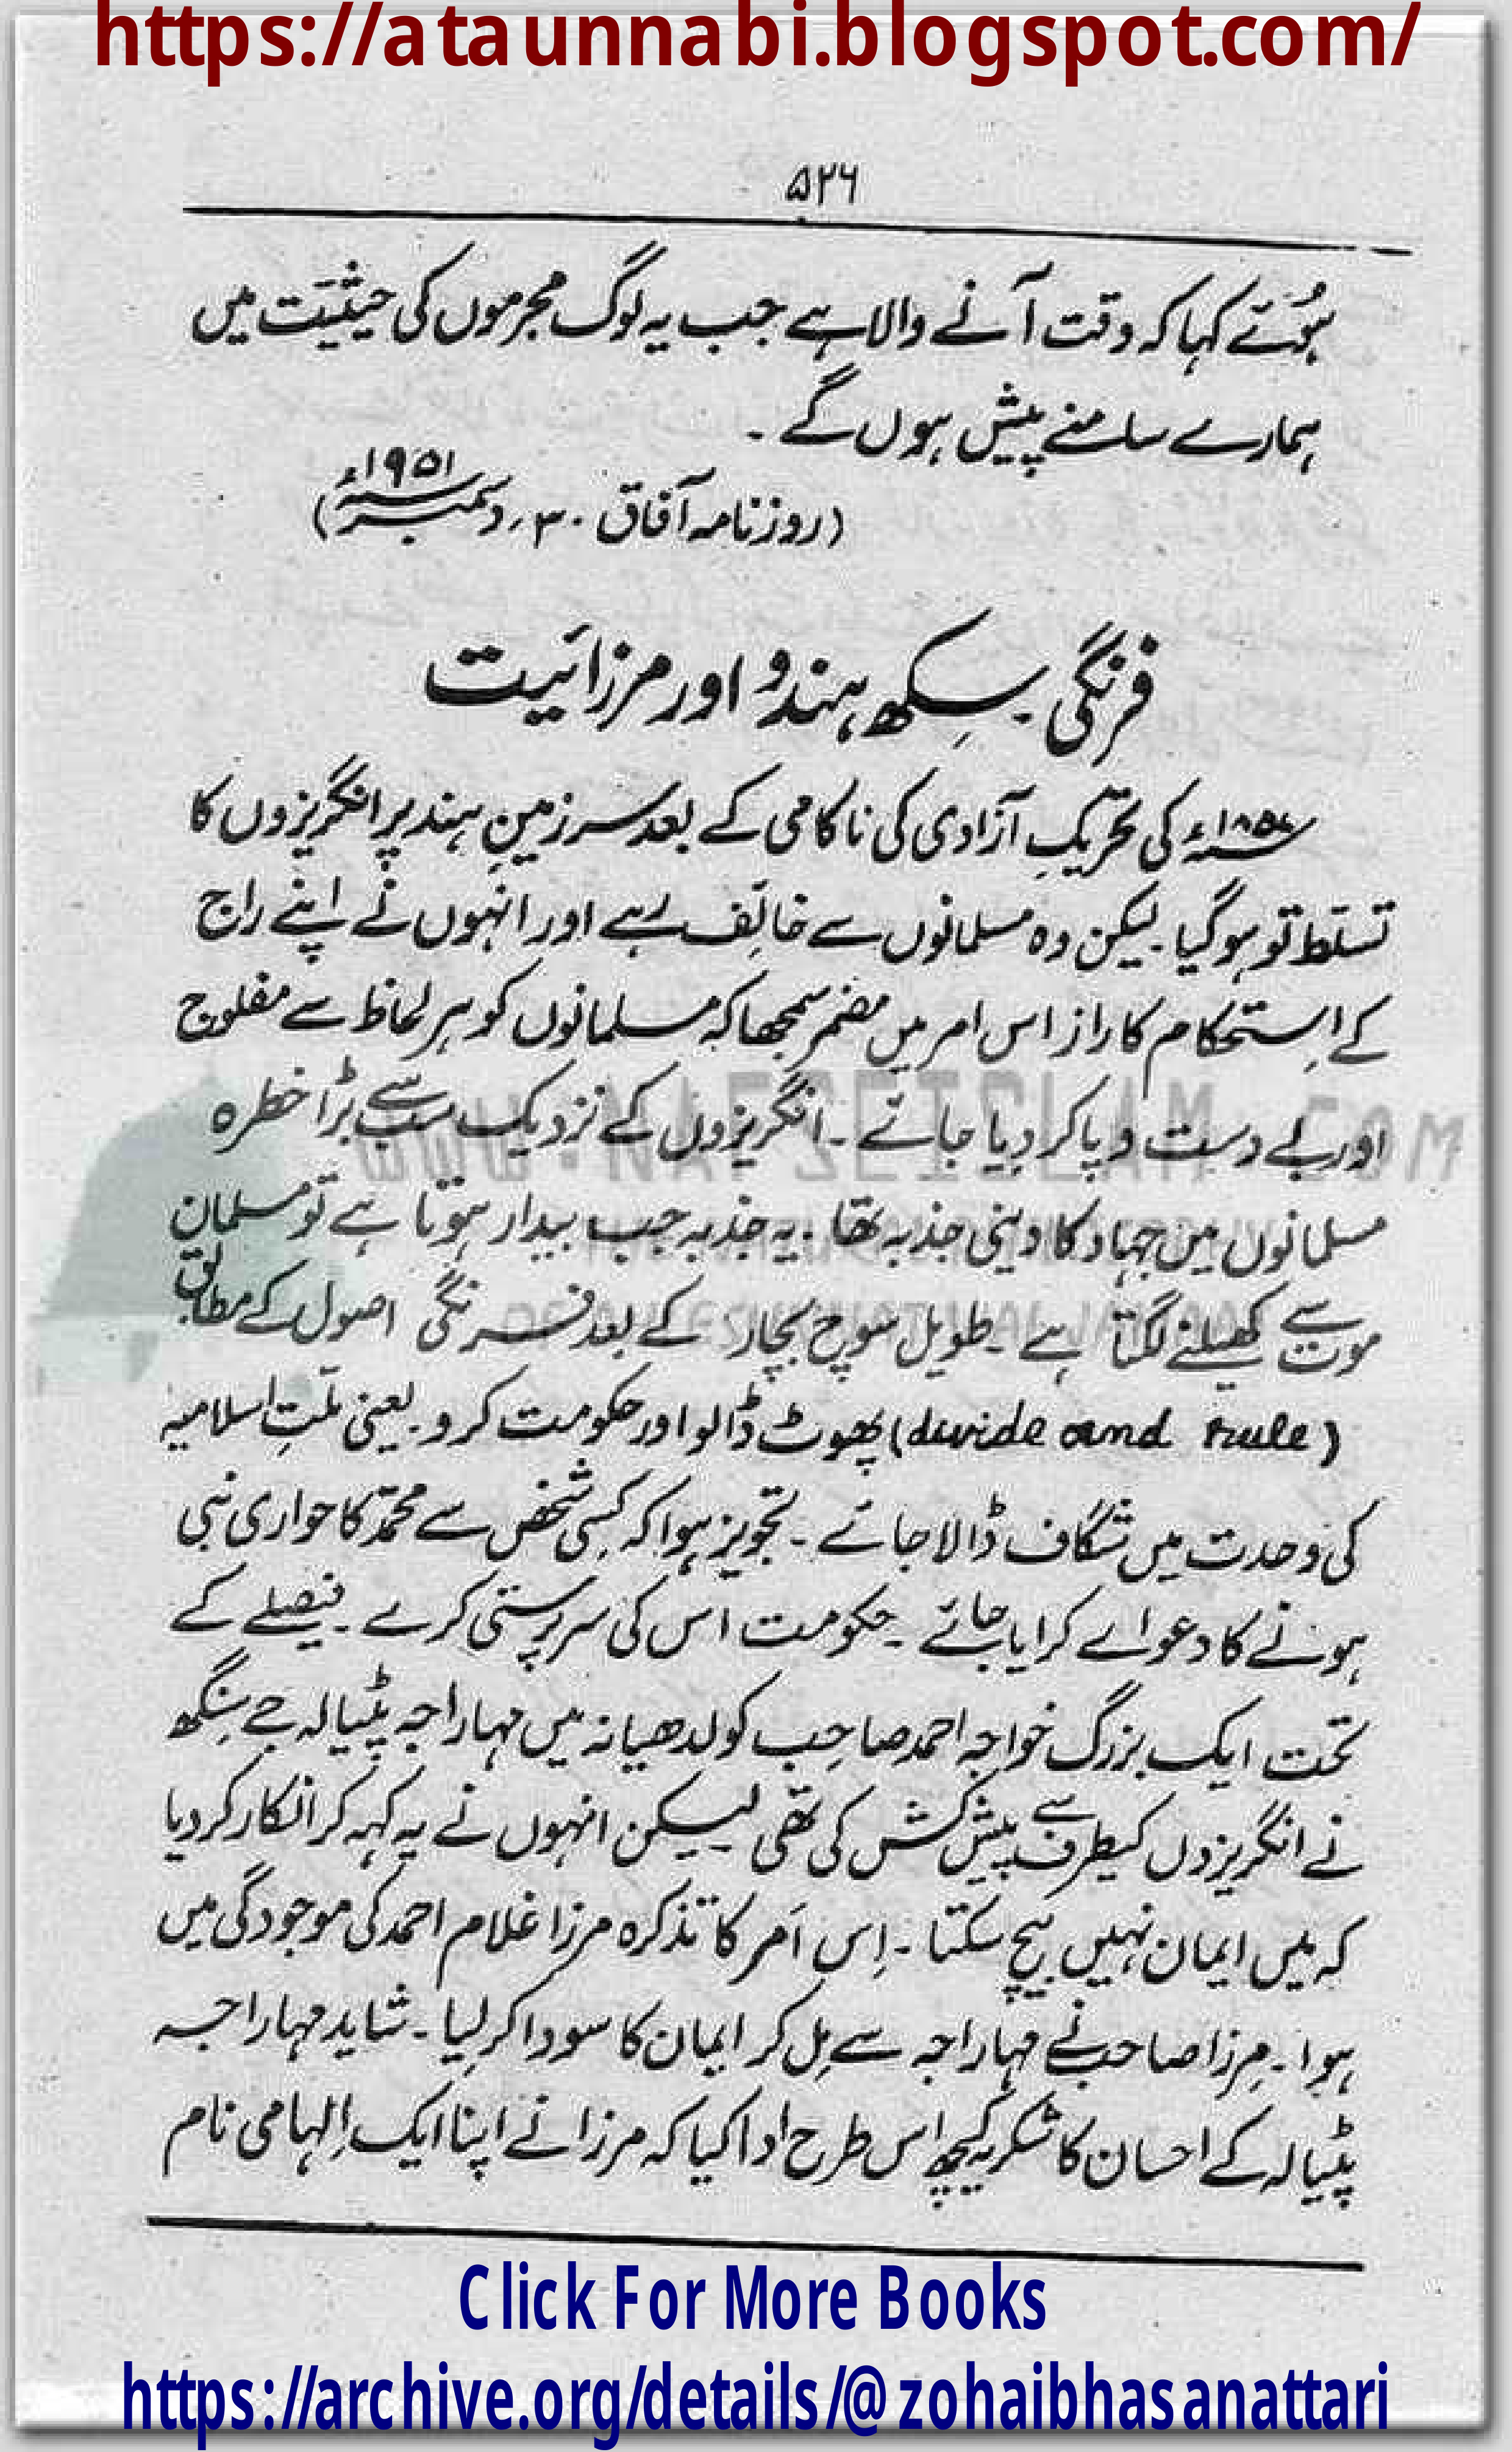 https://ataunnabi.blogspot.com/
۵۲۶
ہُوئے کہا کہ وقت آنے والا ہے جب یہ لوگ مجرموں کی حیثیَت میں
ہمارے سامنے پیش ہوں گے ۔
(روزنامہ آفاق ۳۰؍ دسمبر ۱۹۵۱ء)
فرنگی ۔ سِکھ ہندو اور مرزائیت
۱۸۵۷ء کی تحریکِ آزادی کی ناکامی کے بعد سرزمینِ ہند پر انگریزوں کا
تسلّط تو ہو گیا ۔ لیکن وہ مسلمانوں سے خائف رہے اور انہوں نے اپنے راج
کے اِستحکام کا راز اس امر میں مضمر سمجھا کہ مسلمانوں کو ہر لحاظ سے مفلوج
اور بے دست و پا کر دیا جائے ۔ انگریزوں کے نزدیک سب سے بڑا خطرہ
WWW.NAFSEISLAM.COM
مسلمانوں میں جہاد کا دینی جذبہ تھا ۔ یہ جذبہ جب بیدار ہوتا ہے تو مسلمان
موت سے کھیلنے لگتا ہے ۔ طویل سوچ بچار کے بعد فرنگی اصول کے مطابق
(divide and rule) پھوٹ ڈالو اور حکومت کرو ۔ یعنی ملّتِ اسلامیہ
کی وحدت میں شگاف ڈالا جائے ۔ تجویز ہوا کہ کِسی شخص سے محمدؐ کا حواری نبی
ہونے کا دعوٰے کرایا جائے ۔ حکومت اس کی سرپرستی کرے ۔ فیصلے کے
تحت ایک بزرگ خواجہ احمد صاحِب کو لدھیانہ میں مہاراجہ پٹیالہ جے سِنگھ
نے انگریزوں کیطرف سے پیش کش کی تھی لیکن انہوں نے یہ کہہ کر انکار کر دیا
کہ میں ایمان نہیں بیچ سکتا ۔ اِس اَمر کا تذکرہ مرزا غلام احمد کی موجودگی میں
ہوا ۔ مِرزا صاحب نے مہاراجہ سے مِل کر ایمان کا سودا کر لِیا ۔ شاید مہاراجہ
پٹیالہ کے احسان کا شکریہ کچھ اِس طرح ادا کیا کہ مرزا نے اپنا ایک اِلہامی نام
Click For More Books
https://archive.org/details/@zohaibhasanattari